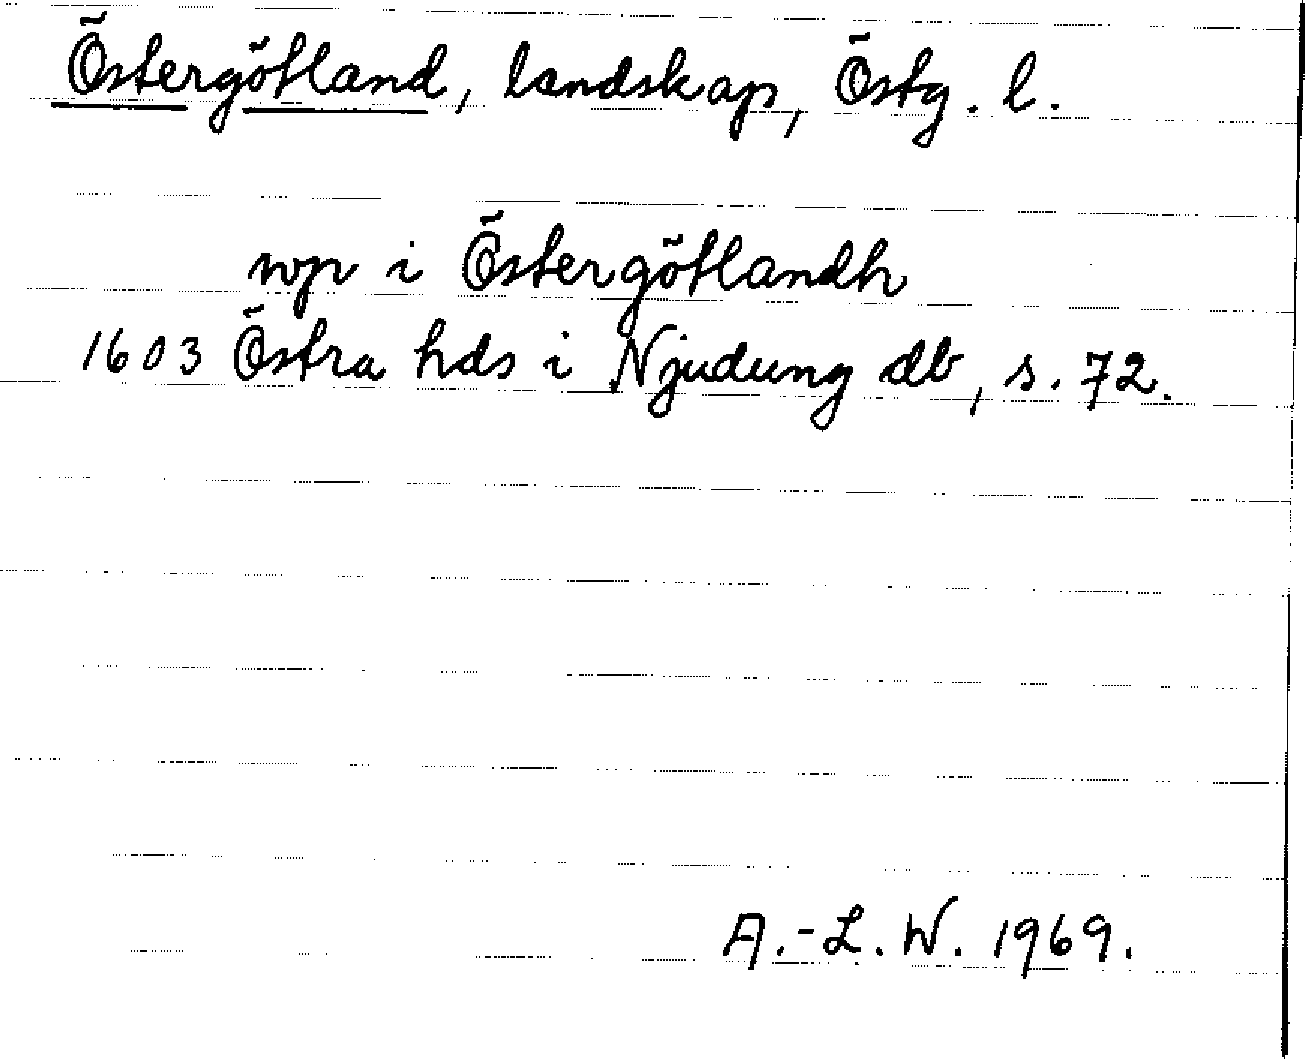 Östergötland, landskap, Östg. l.
wp i Östergötlandh
1603 Östra hds i Njudung db, s. 72.
A.-L. W. 1969.